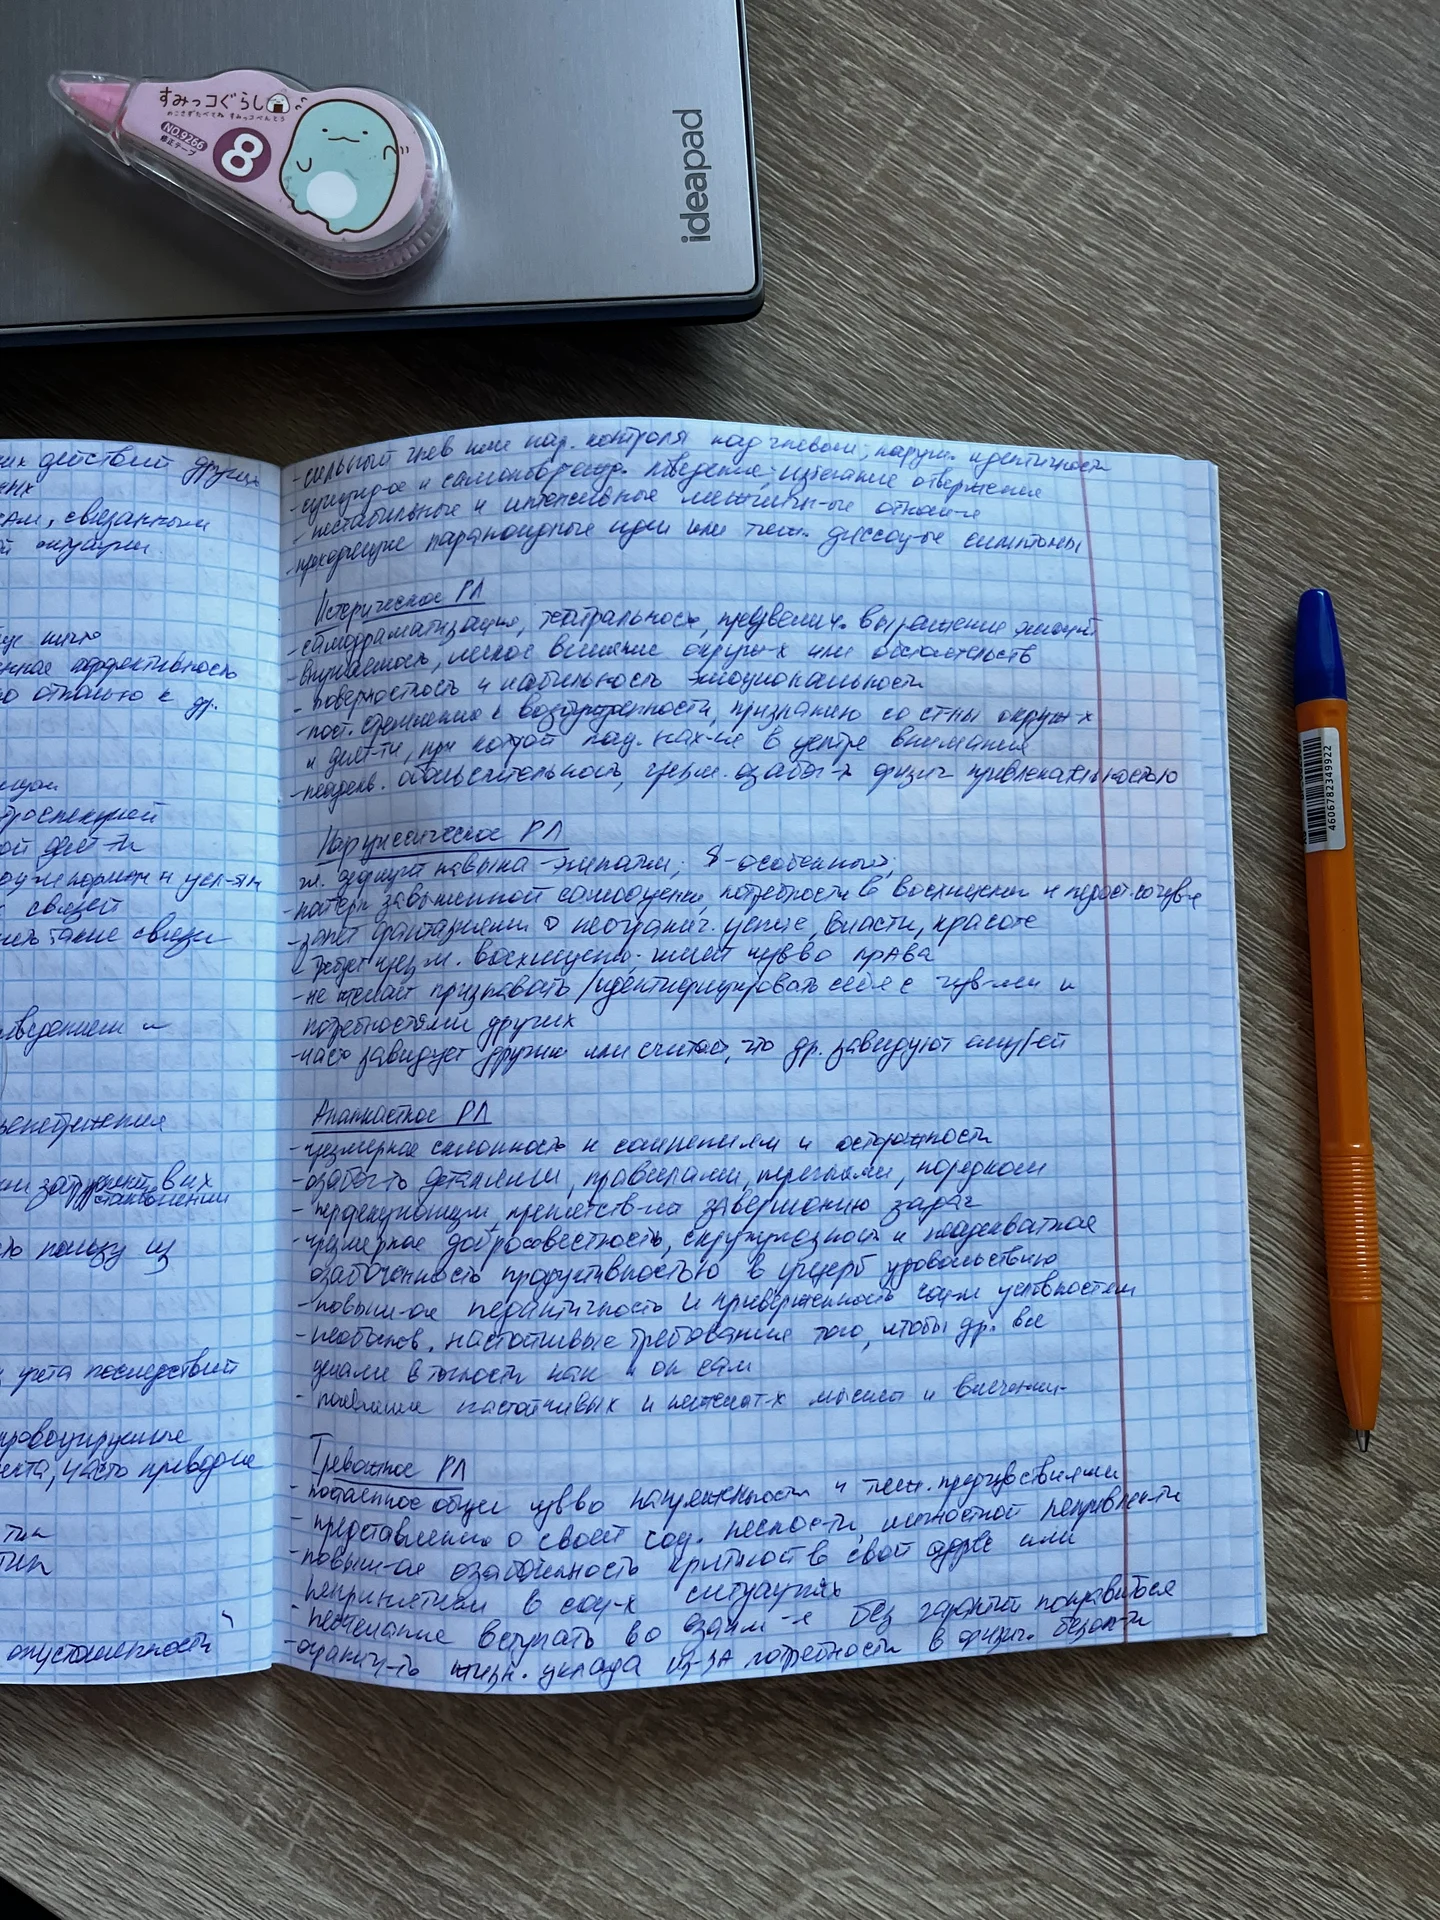 すみっコぐらし
NO.9266
修正テープ
8
ideapad
4606782349922
них действий других
сам, связанным
й ситуации
нная аффективность
др.
ой деят-ти
связей
такие связи
затруднит. в их
становлении
пользу из
учёта последствий
провоцируемые
часто приводя
тип
тип
опустошенности
- сильный гнев или нар. контроля над гневом; наруш. идентичности
- суицид-ое и самоповрежд. поведение; избегание отвержения
- нестабильные и интенсивные межличн-ые отнош-я
- преходящие параноидные идеи или тяж. диссоц-ые симптомы
Истерическое РЛ
- самодраматизация, театральность, преувелич. выражение эмоций
- внушаемость, легкое влияние окруж-х или обстоятельств
- поверхностность и лабильность эмоциональности
- пост. стремление к возбужденности, признанию со ст-ны окруж-х
и деят-ти, при которой нах-ие в центре внимания
- неадекв. обольстительность, чрезм. озабоч-ть физич. привлекательностью
Нарциссическое РЛ
гл. дефицит навыка - эмпатии; Я - особенный;
- паттерн завышенной самооценки, потребности в восхищении и
- занят фантазиями о неогранич. успехе, власти, красоте
- требует чрезм. восхищения; имеет чувство права
- не желает признавать / идентифицировать себя с чув-ми и
потребностями других
- часто завидует другим или считает, что др. завидуют ему/ей
Ананкастное РЛ
- чрезмерная склонность к сомнениям и осторожности
- озабоч-ть деталями, правилами, перечнями, порядком
- перфекционизм, препятств-ий завершению задач
- чрезмерная добросовестность, скрупулезность и неадекватная
озабоченность продуктивностью в ущерб удовольствию
- повыш-ая педантичность и приверженность соц-м условностям
- необоснов. настойчивые требования того, чтобы др. все
делали в точности как и он сам
- появление настойчивых и нежелат-х мыслей и влечений
Тревожное РЛ
- постоянное общее чувство напряженности и тяж. предчувствиями
- представления о своей соц. неспос-ти, личностной непривлек-ти
- повыш-ая озабоченность критикой в свой адрес или
непринятием в соц-х ситуациях
- нежелание вступать во взаим-я без гарантий понравиться
- огранич-ть жизн. уклада из-за потребности в физич. безоп-ти